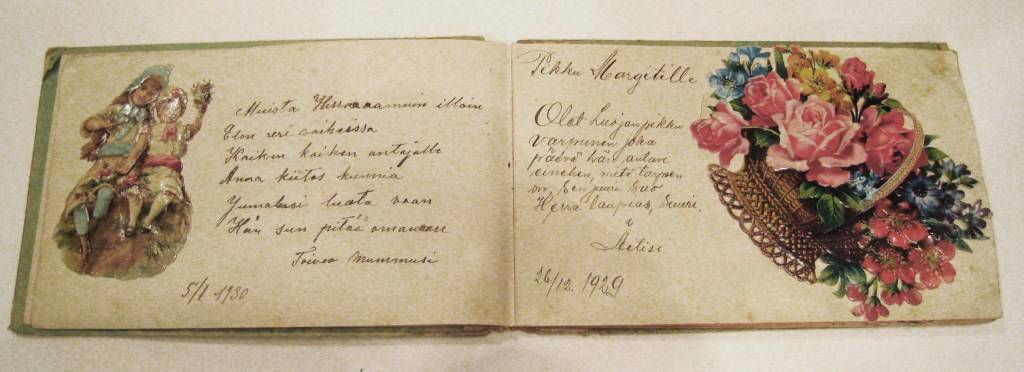 Muista Herraa aamuin illoin
Elon eri vaiheissa
Kaiken kaiken antajalle
Anna kiitos kunnia
Jumalasi luota vaan
Hän sun pitää omanaan
Toivoo mummusi
5/1 1930
Pikku Margitille
Olet Luojan pikku
varpunen joka
päivä hän antaa
einehen, mitä tarpen
on, sen juuri suo
Herra laupias, suuri.
Äitisi
26/12. 1929